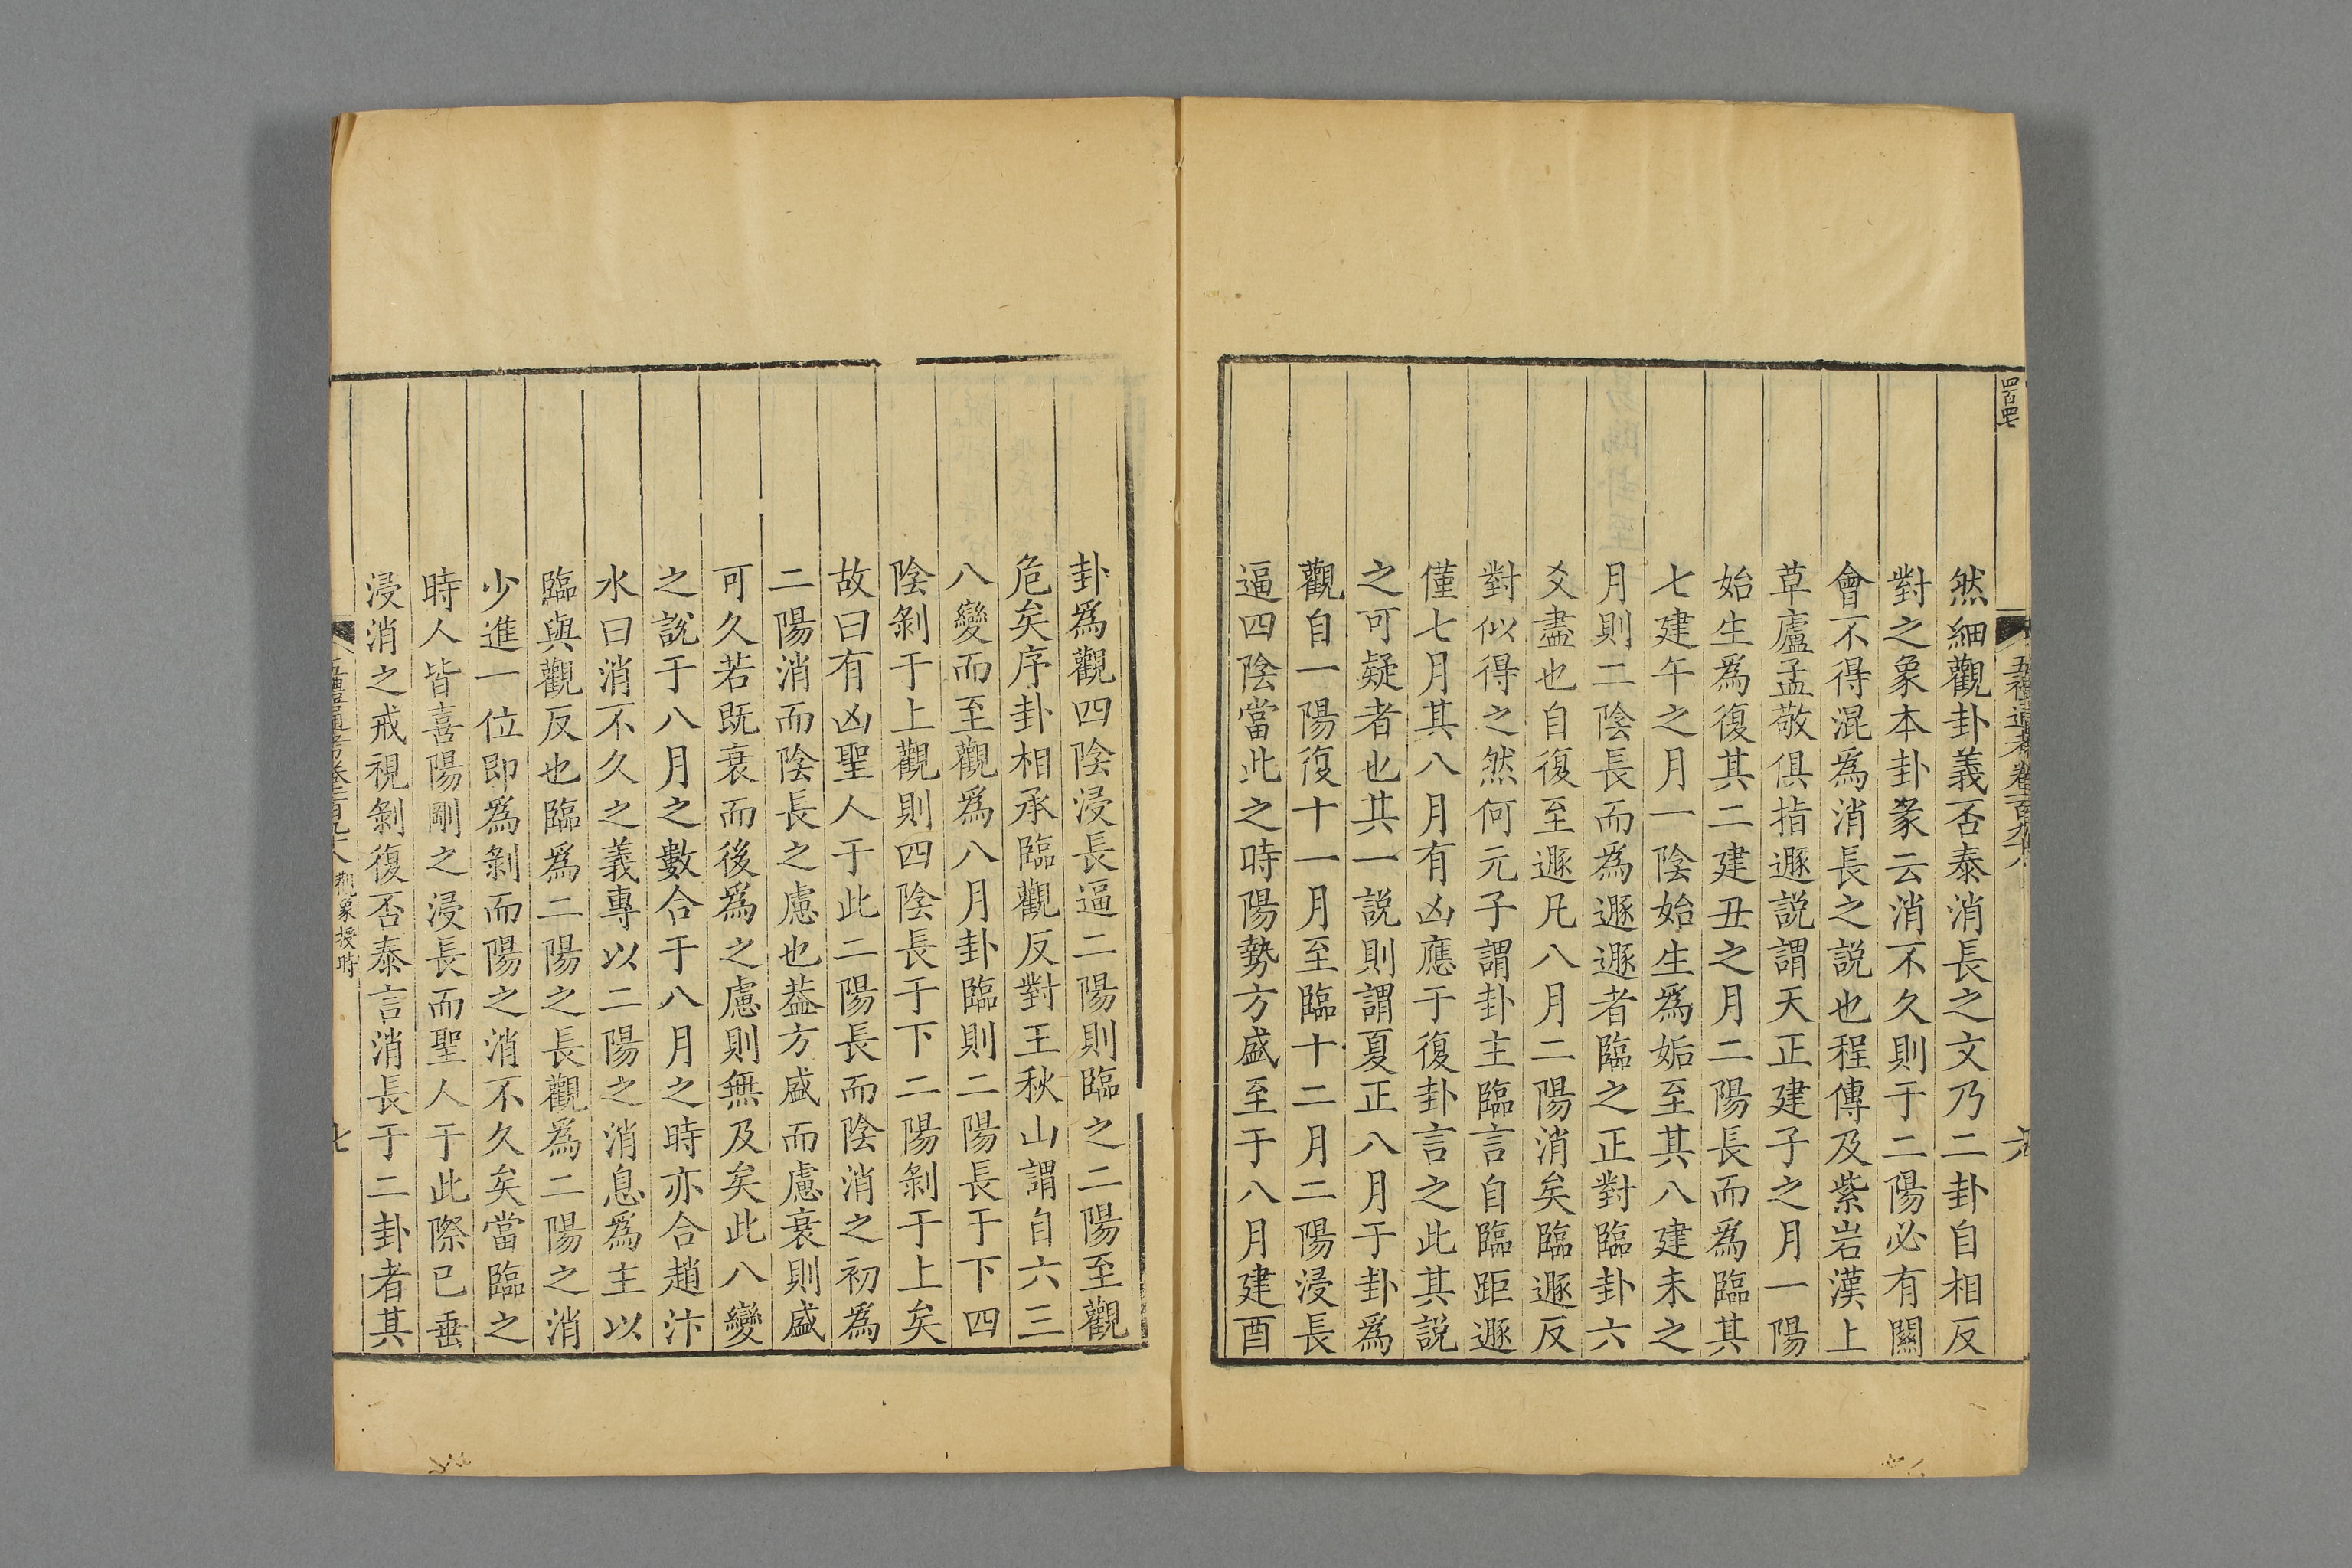 然細觀卦義否泰消長之文乃二卦自相反
對之象本卦彖云消不久則于二陽必有關
會不得混爲消長之說也程傳及紫岩漢上
草廬孟敬俱指遯説謂天正建子之月一陽
始生爲復其二建丑之月二陽長而爲臨其
七建午之月一陰始生爲姤至其八建未之
月則二陰長而爲遯遯者臨之正對臨卦六
爻盡也自復至遯凡八月二陽消矣臨遯反
對似得之然何元子謂卦主臨言自臨距遯
僅七月其八月有凶應于復卦言之此其説
之可疑者也其一説則謂夏正八月于卦爲
觀自一陽復十一月至臨十二月二陽浸長
逼四陰當此之時陽勢方盛至于八月建酉
卦爲觀四陰浸長逼二陽則臨之二陽至觀
危矣序卦相承臨觀反對王秋山謂自六三
八變而至觀爲八月卦臨則二陽長于下四
陰剝于上觀則四陰長于下二陽剝于上矣
故曰有凶聖人于此二陽長而陰消之初爲
二陽消而陰長之慮也葢方盛而慮衰則盛
可久若既衰而後爲之慮則無及矣此八變
之説于八月之數合于八月之時亦合趙汴
水曰消不久之義專以二陽之消息爲主以
臨與觀反也臨爲二陽之長觀為二陽之消
少進一位即爲剝而陽之消不久矣當臨之
時人皆喜陽剛之浸長而聖人于此際已垂
浸消之戒視剝復否泰言消長于二卦者其
觀象授時
七